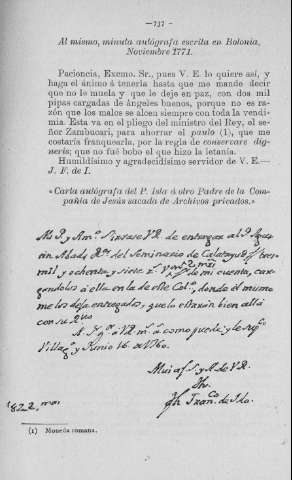 —737—
Al mismo, minuta autógrafa escrita en Bolonia,
Noviembre 1771.
Paciencia, Excmo. Sr., pues V. E. lo quiere así, y
haga el ánimo á tenerla hasta que me mande decir
que no le muela y que le deje en paz, con dos mil
pipas cargadas de ángeles buenos, porque no es ra-
zón que los malos se alcen siempre con toda la vendi-
mia. Esta va en el pliego del ministro del Rey, el se-
ñor Zambucari, para ahorrar el paulo (1), que me
costaría franquearla, por la regla de conservare dig-
neris; que no fué bobo el que hizo la letanía.
Humildísimo y agradecidísimo servidor de V. E.—
J. F. de I.
«Carta autógrafa del P. Isla á otro Padre de la Com-
pañía de Jesús sacada de Archivos privados.»
Mi P. y Am.º Sirvase V.R. de entregar al P.
Abad del Seminario de Calatayud tres-
mil y ochenta y siete de mi cuenta, car-
gandolos á ella en la de este Col.º, donde el mismo
me los dexa entregados, que lo estarán bien allá
con su
Villag.ª y Junio 16 de 1760.
Mui af.º S. y A. de V.R.
Jhs.
Jh Fran.co de Isla.
(1) Moneda romana.